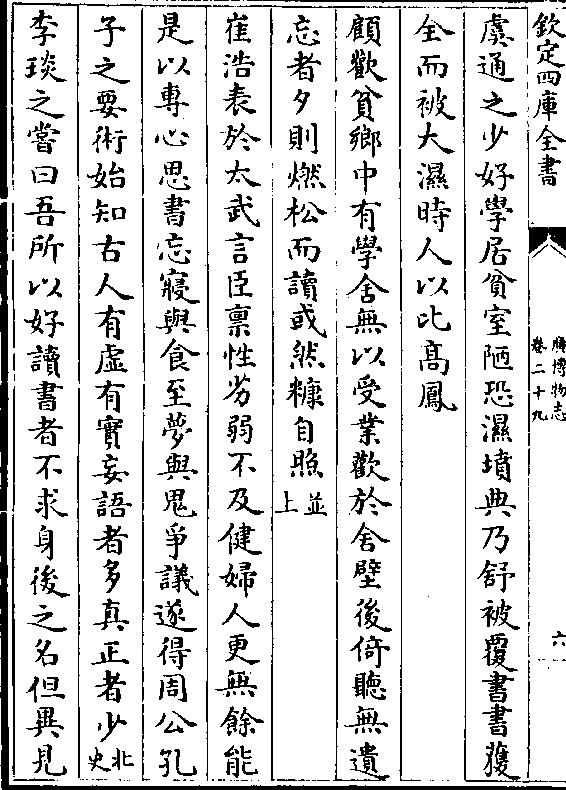 欽定四庫全書
廣博物志
卷二十九
六
虞通之少好學居貧室陋恐濕墳典乃舒被覆書書獲
全而被大濕時人以比高鳳
顧歡貧鄉中有學舍無以受業歡於舍壁後倚聽無遺
忘者夕則燃松而讀或然糠自照並上
崔浩表於太武言臣禀性劣弱不及健婦人更無餘能
是以專心思書忘寢與食至夢與鬼爭議遂得周公孔
子之要術始知古人有虛有實妄語者多真正者少北史
李琰之嘗曰吾所以好讀書者不求身後之名但異見